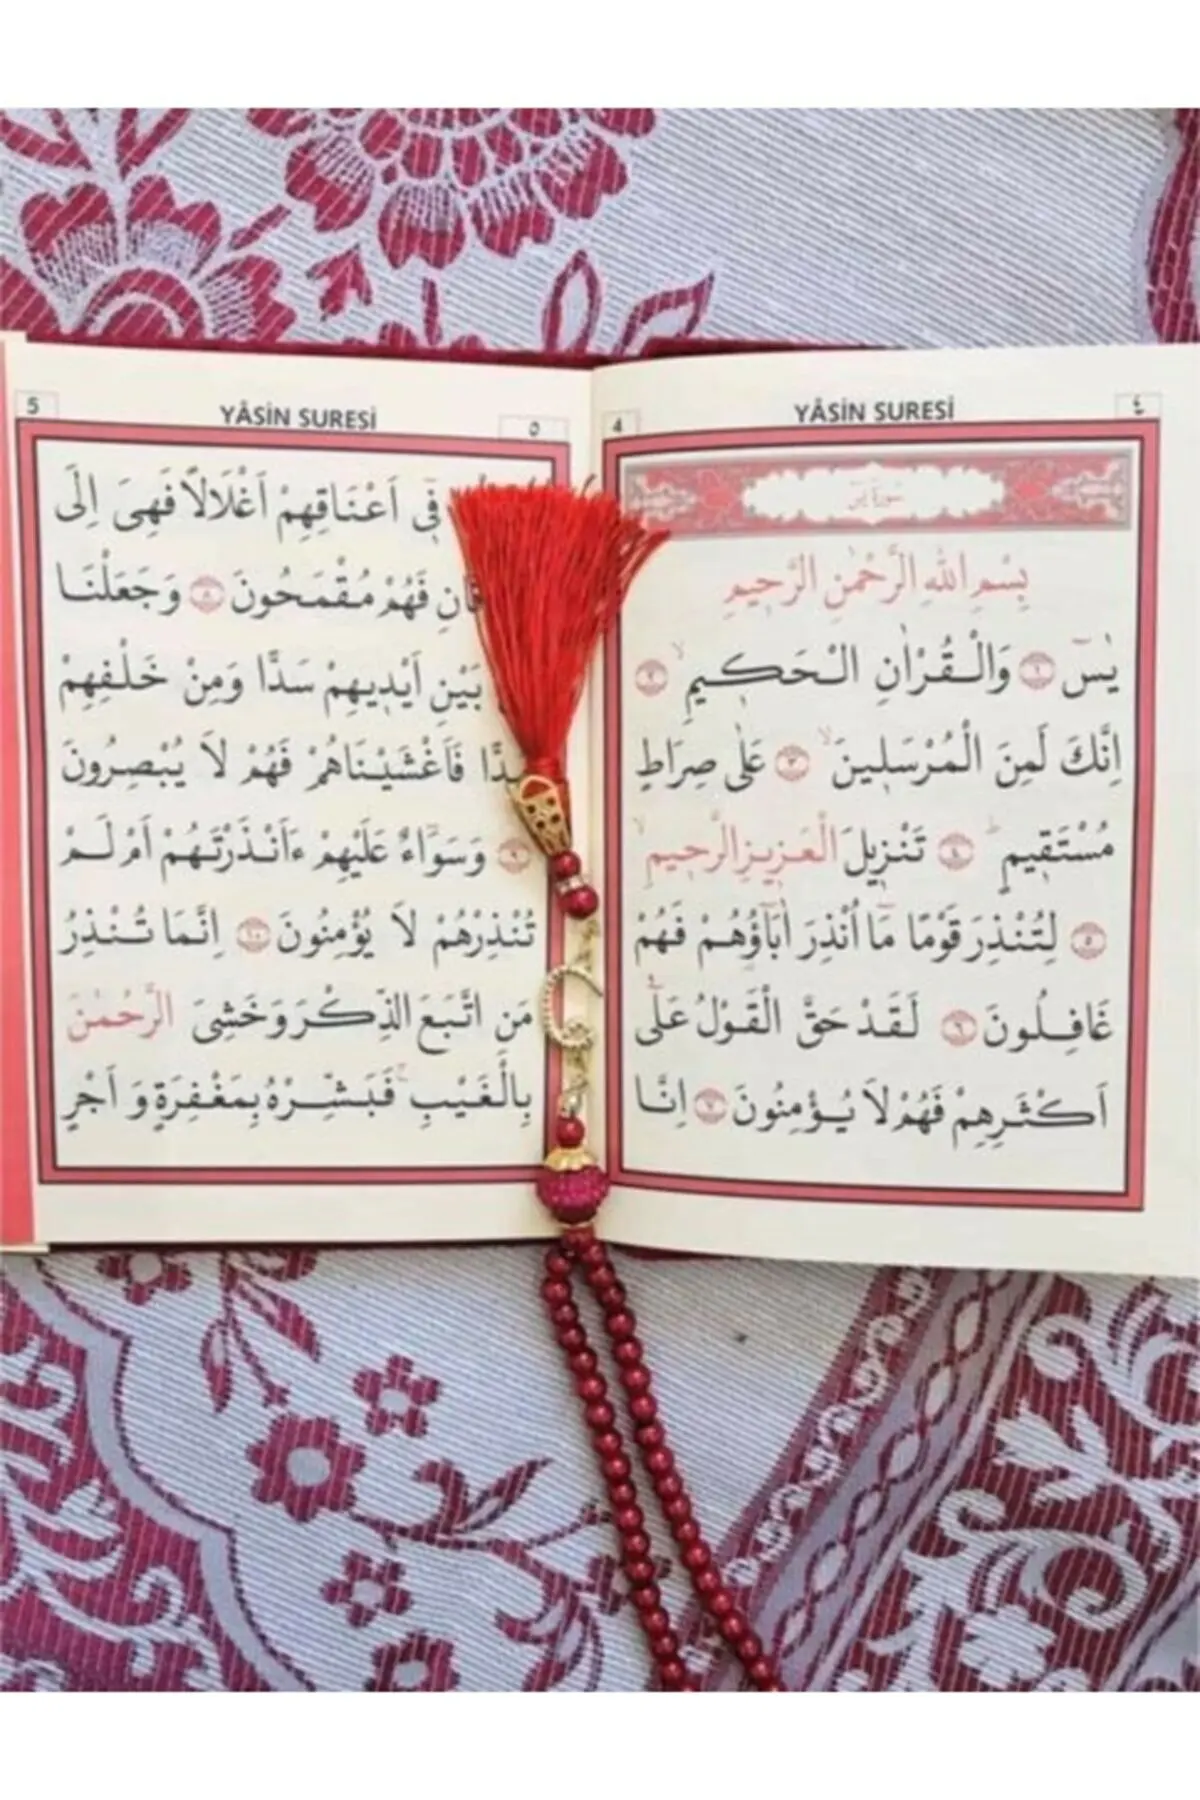 YÂSİN SURESİ
4
٤
سورة يس
بِسْمِ اللهِ الرَّحْمٰنِ الرَّحِيمِ
يٰسٓ ﴿١﴾ وَالْقُرْاٰنِ الْحَكِيمِۙ ﴿٢﴾
اِنَّكَ لَمِنَ الْمُرْسَلِينَۙ ﴿٣﴾ عَلٰى صِرَاطٍ
مُسْتَقِيمٍۜ ﴿٤﴾ تَنْزِيلَ الْعَزِيزِ الرَّحِيمِۙ
﴿٥﴾ لِتُنْذِرَ قَوْمًا مَٓا اُنْذِرَ اٰبَٓاؤُهُمْ فَهُمْ
غَافِلُونَ ﴿٦﴾ لَقَدْ حَقَّ الْقَوْلُ عَلٰٓى
اَكْثَرِهِمْ فَهُمْ لَا يُؤْمِنُونَ ﴿٧﴾ اِنَّا
5
YÂSİN SURESİ
٥
فِٓى اَعْنَاقِهِمْ اَغْلَالًا فَهِىَ اِلَى
فَهُمْ مُقْمَحُونَ ﴿٨﴾ وَجَعَلْنَا
بَيْنِ اَيْدِيهِمْ سَدًّا وَمِنْ خَلْفِهِمْ
فَاَغْشَيْنَاهُمْ فَهُمْ لَا يُبْصِرُونَ
﴿٩﴾ وَسَوَٓاءٌ عَلَيْهِمْ ءَاَنْذَرْتَهُمْ اَمْ لَمْ
تُنْذِرْهُمْ لَا يُؤْمِنُونَ ﴿١٠﴾ اِنَّمَا تُنْذِرُ
مَنِ اتَّبَعَ الذِّكْرَ وَخَشِىَ الرَّحْمٰنَ
بِالْغَيْبِۚ فَبَشِّرْهُ بِمَغْفِرَةٍ وَ اَجْرٍ